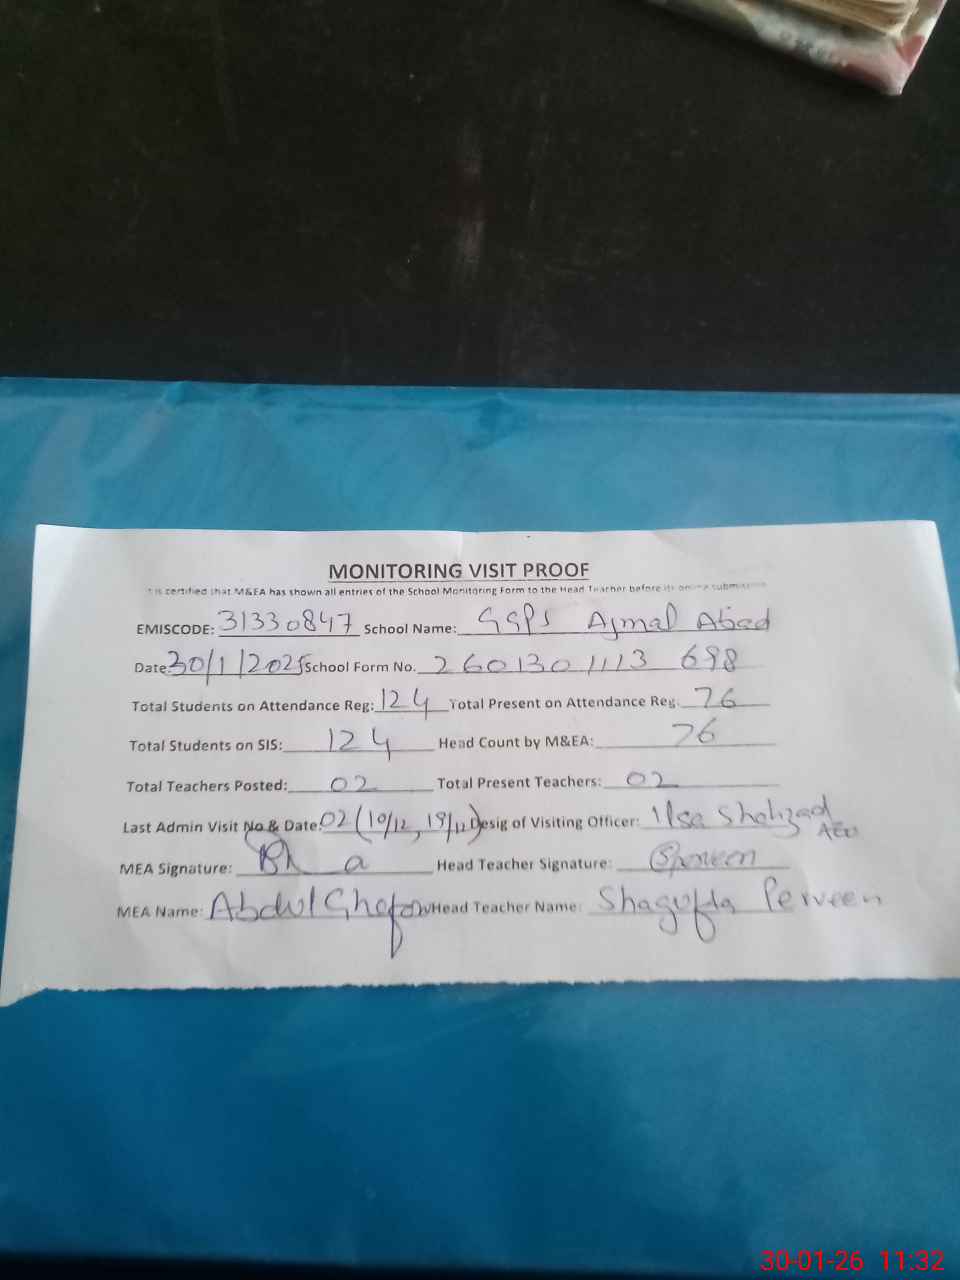 MONITORING VISIT PROOF
It is certified that M&EA has shown all entries of the School Monitoring Form to the Head Teacher before its online submission
EMISCODE: 31330847 School Name: GGPS Ajmal Abad
Date 30/1/2025 School Form No. 2601301113 698
Total Students on Attendance Reg: 124 Total Present on Attendance Reg. 76
Total Students on SIS: 124 Head Count by M&EA: 76
Total Teachers Posted: 02 Total Present Teachers: 02
Last Admin Visit No & Date: 02 (10/12, 19/12) Desig of Visiting Officer: Ilsa Shahzad
AEO
MEA Signature: Head Teacher Signature: SPerveen
MEA Name: Abdul Ghafor Head Teacher Name: Shagufta Perveen
30-01-26 11:32